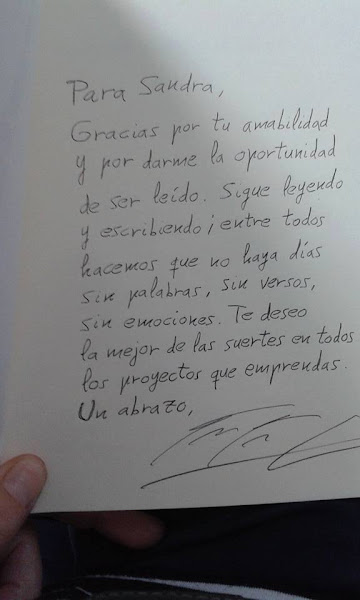 Para Sandra,
Gracias por tu amabilidad
y por darme la oportunidad
de ser leído. Sigue leyendo
y escribiendo; entre todos
hacemos que no haya días
sin palabras, sin versos,
sin emociones. Te deseo
la mejor de las suertes en todos
los proyectos que emprendas.
Un abrazo,